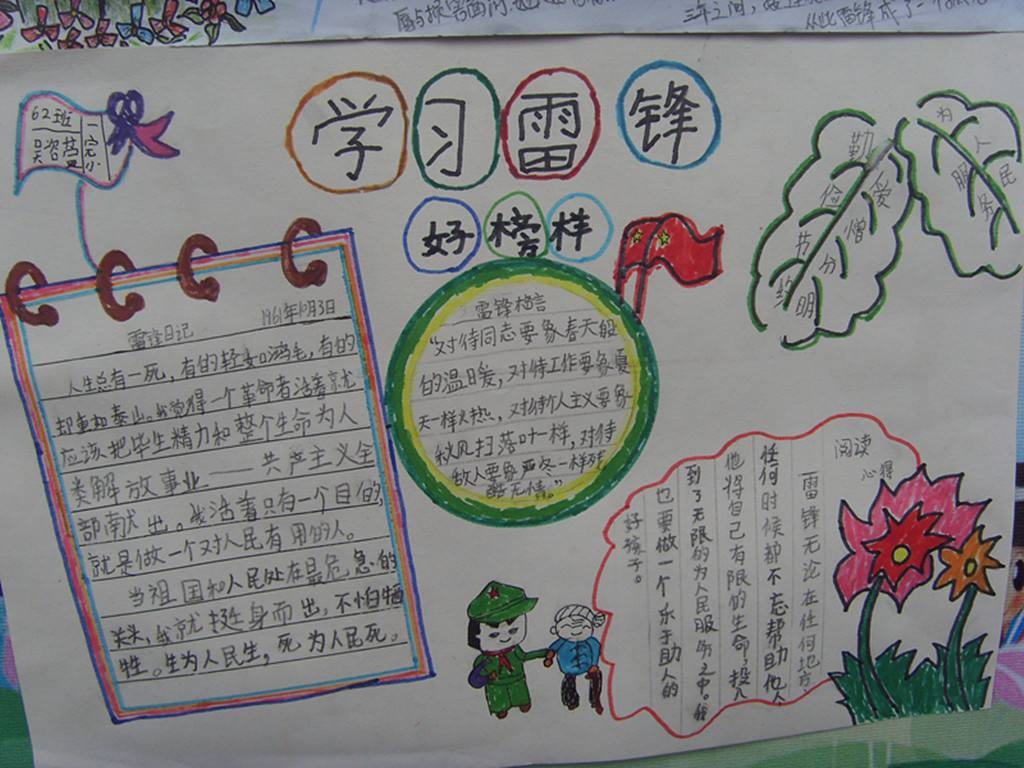 三年之间,
从此雷锋成了一个
62班
吴咨
一完小
学习雷锋
好榜样
勤俭节约
爱憎分明
为人民服务
雷锋日记 1961年10月3日
人生总有一死,有的轻如鸿毛,有的
却重如泰山。我觉得一个革命者活着就
应该把毕生精力和整个生命为人
类解放事业——共产主义全
部献出。我活着只有一个目的,
就是做一个对人民有用的人。
当祖国和人民处在最危急的
关头,我就挺身而出,不怕牺
牲。生为人民生,死为人民死。
雷锋格言
“对待同志要象春天般
的温暖,对待工作要象夏
天一样火热,对待个人主义要象
秋风扫落叶一样,对待
敌人要象严冬一样残
酷无情。”
阅读
心得
雷锋无论在任何地方,
任何时候都不忘帮助他人
他将自己有限的生命,投入
到了无限的为人民服务之中。我
也要做一个乐于助人的
好孩子。